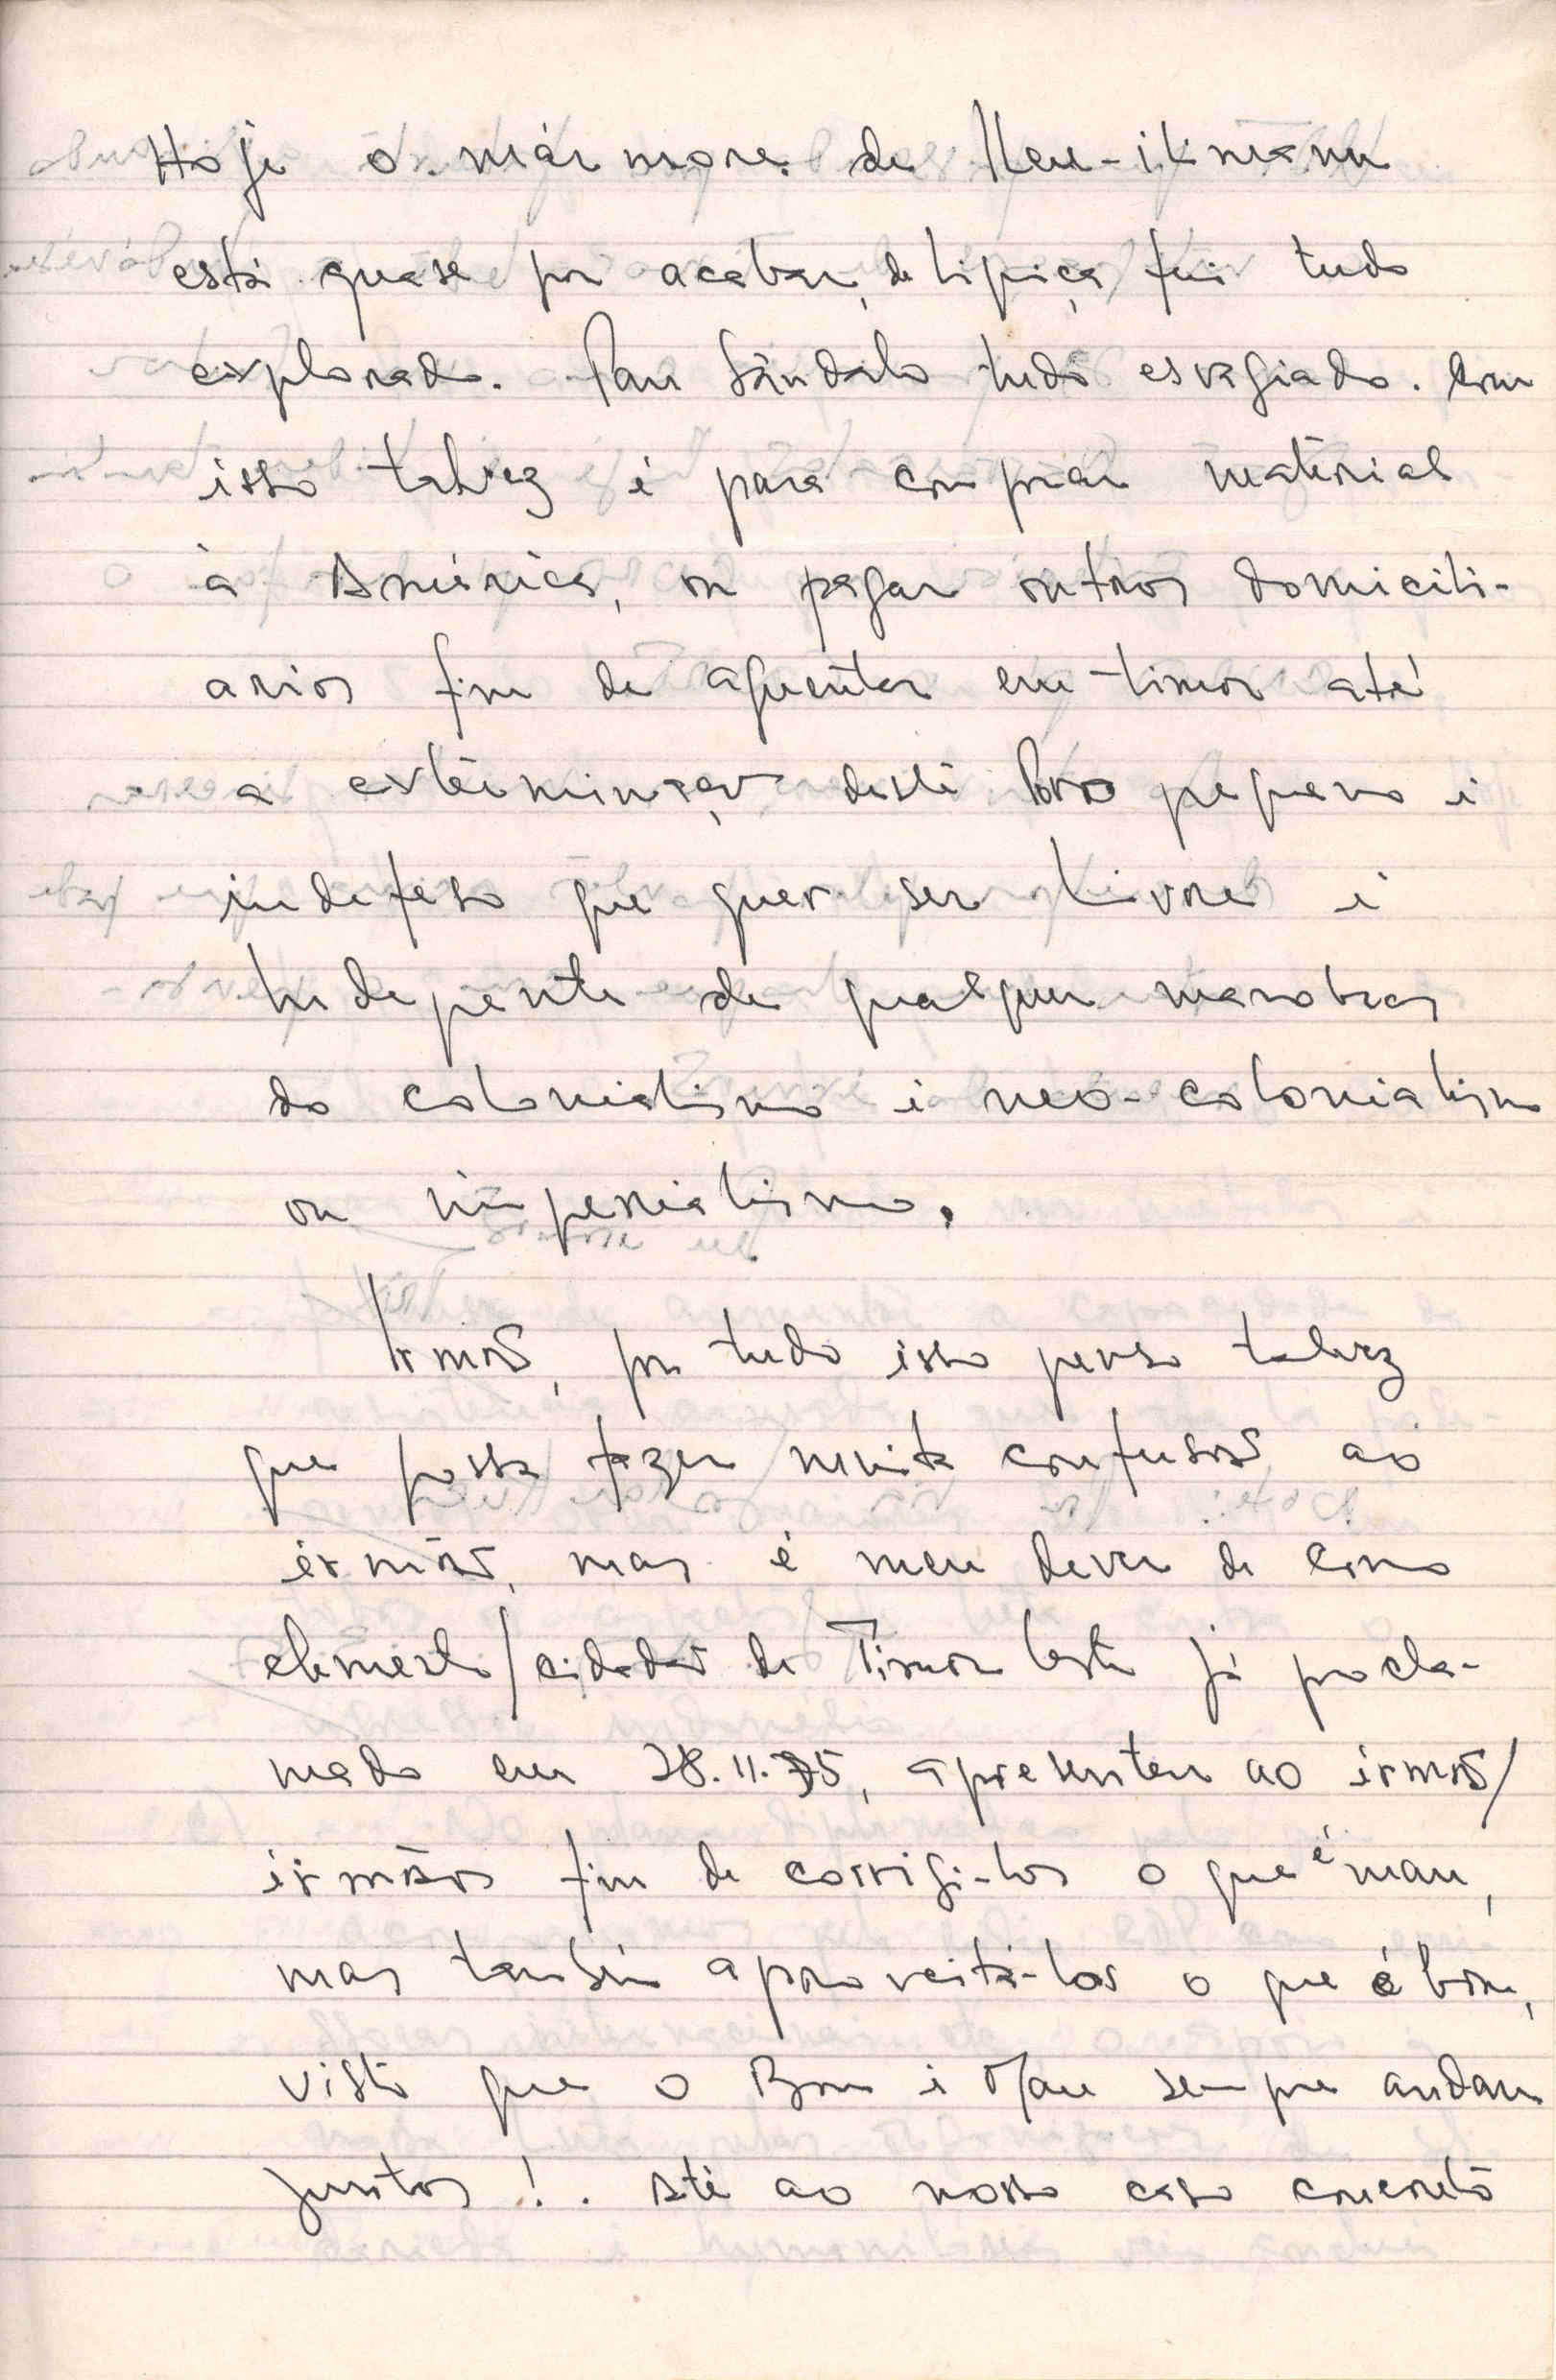 Hoje o mármore de Ileu-ikmanu
está quase por acabar, de lipiça foi tudo
explorado. Pau Sândalo tudo esvagiado. Com
isso talvez é para comprar matérial
à América, ou pagar outros domicili-
arios fim de aguentar em-timor até
a exterminação deste Povo pequeno i
indefeso que quer ser Livre i
Indepente de qualquer manobras
do colonialismo i neo-colonialismo
ou imperialismo.
Irmão, por tudo isso penso talvez
que possa fazer muita confusão ao
irmão, mas é meu dever de como
elemento/cidadão de Timor Leste já procla-
mado em 28.11.75, apresentar ao irmão/
irmãos fim de corrigi-los o que é mau,
mas também aproveitá-los o que é bom,
visto que o Bom i Mau sempre andam
juntos!. Até ao nosso caso concreto